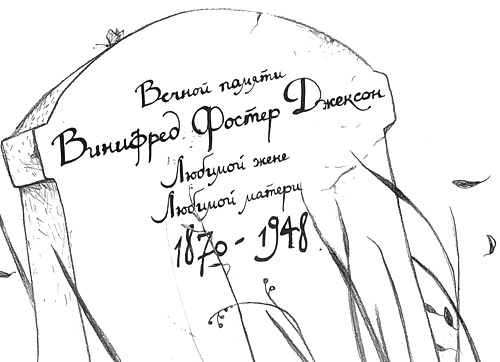 Вечной памяти
Винифред Фостер Джексон
Любимой жене
Любимой матери
1870 - 1948